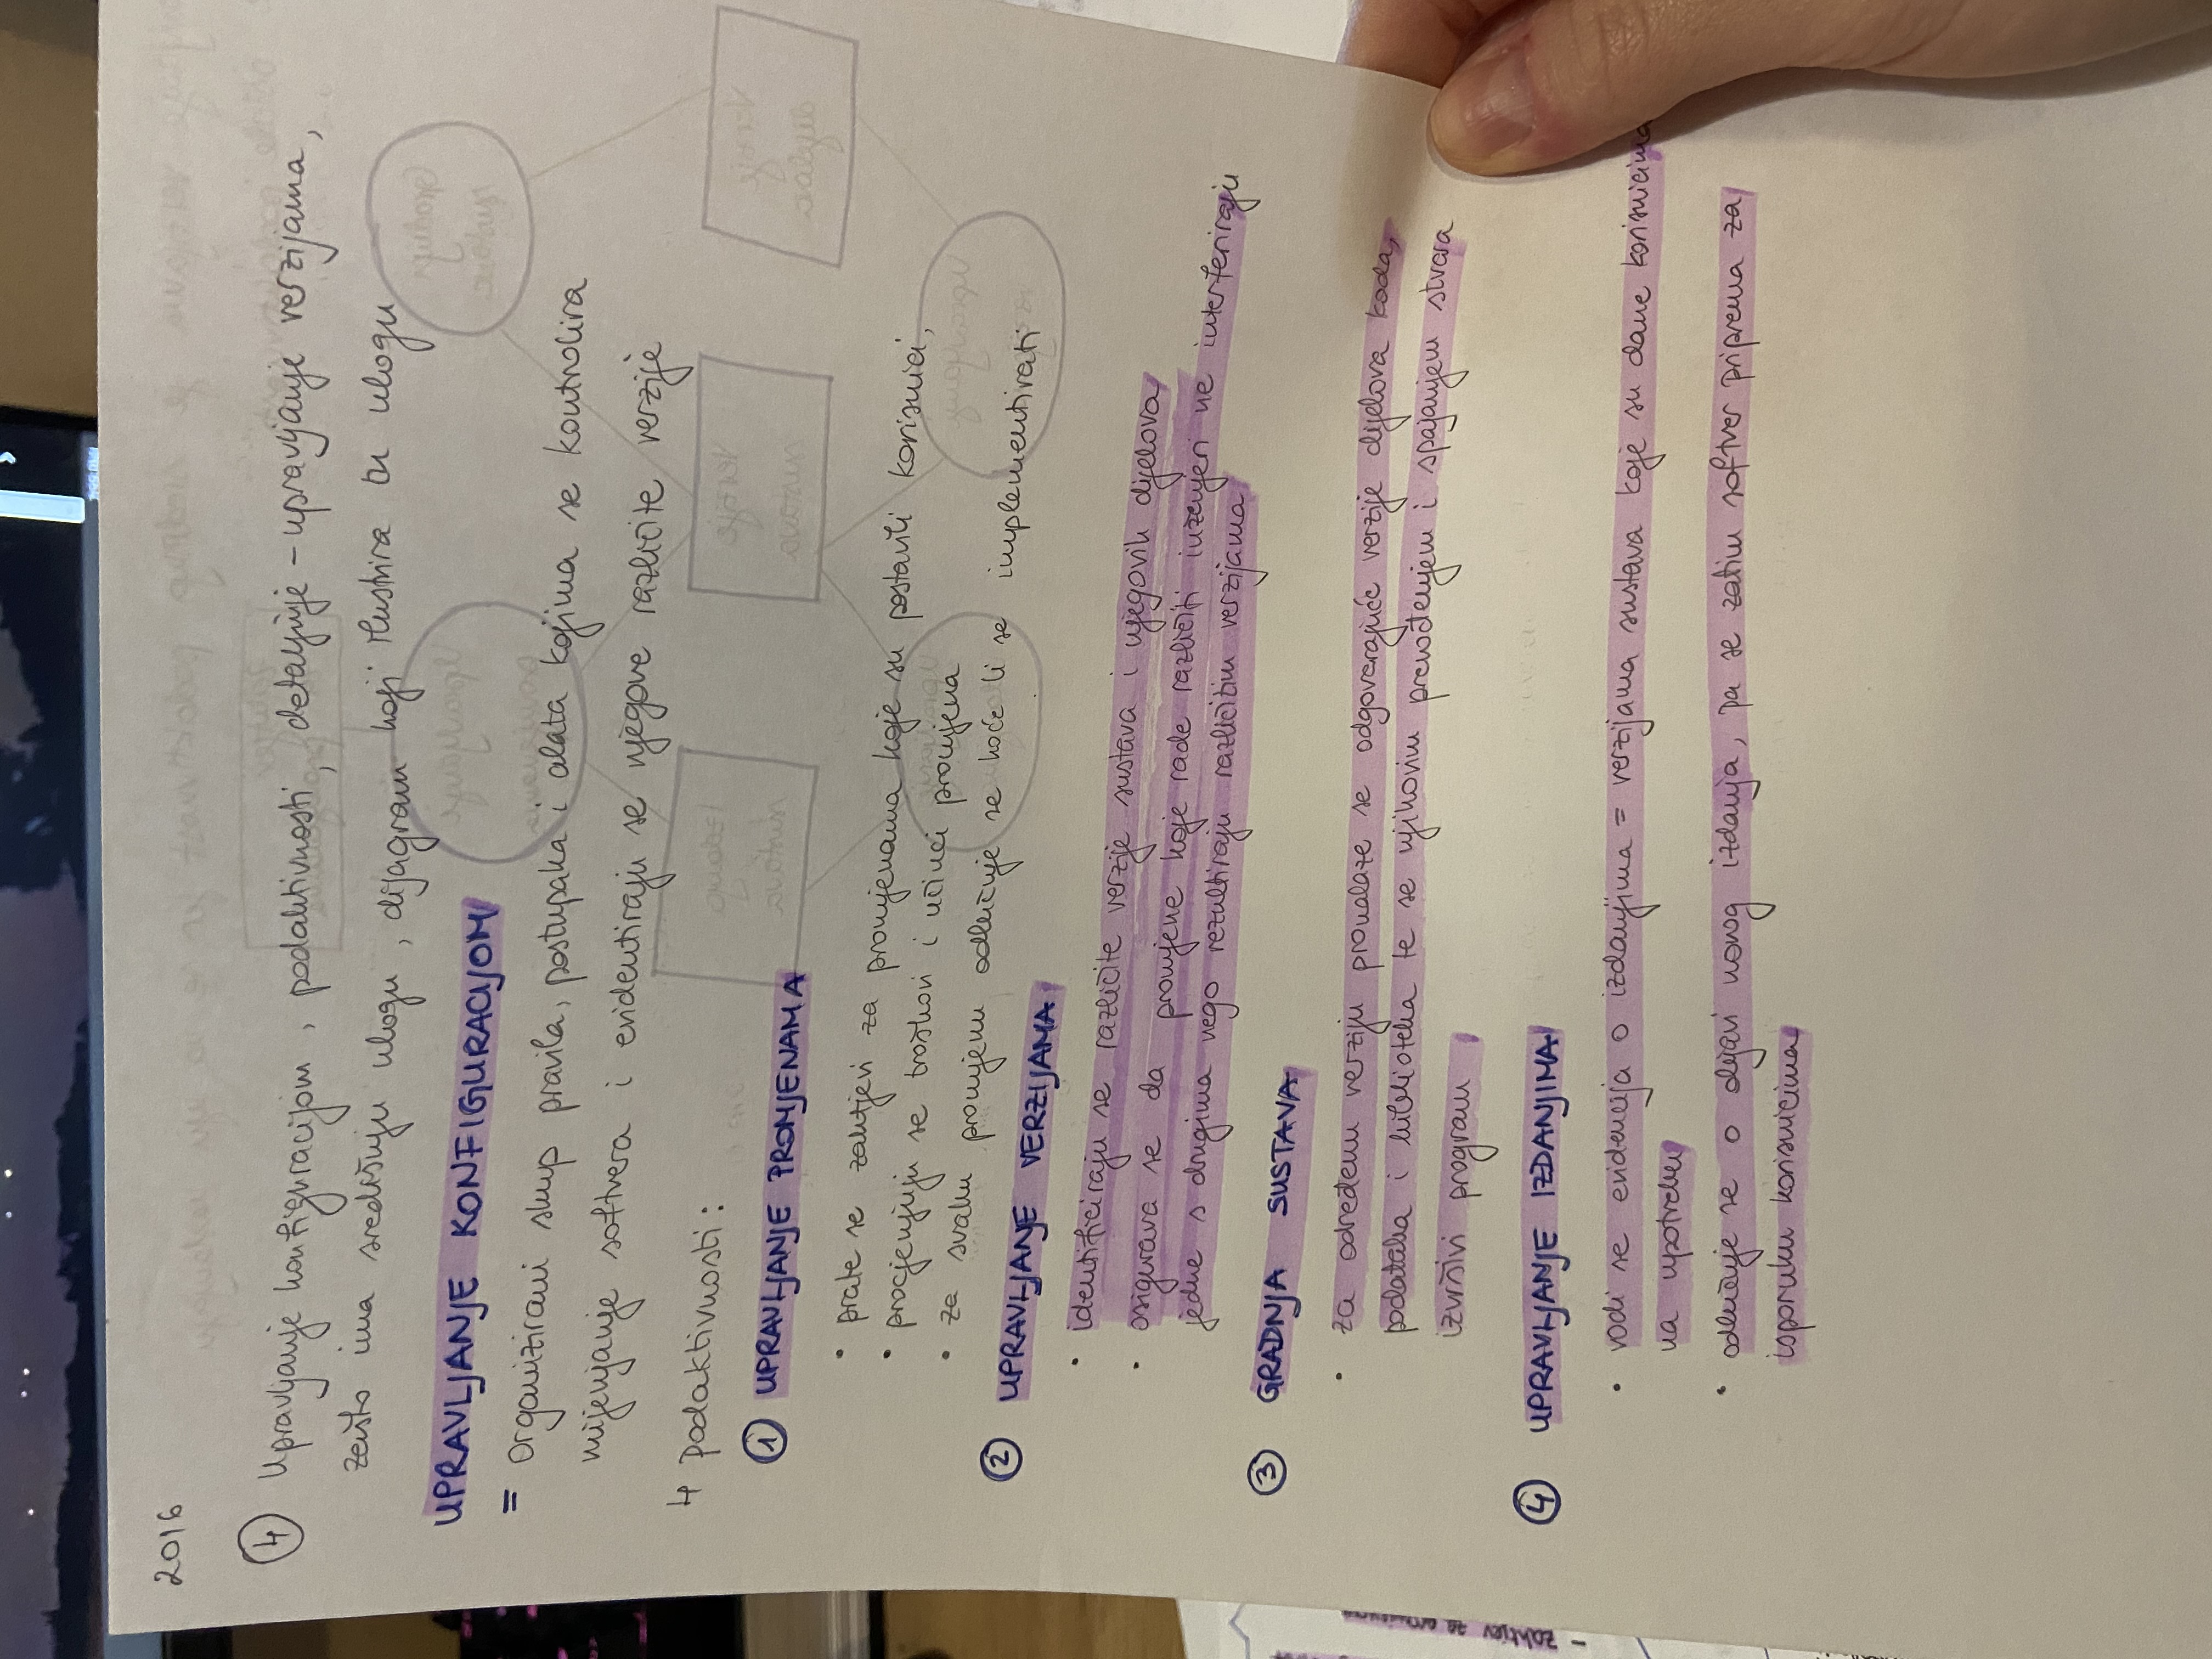 2016
④ Upravljanje konfiguracijom, podaktivnosti, detaljnije - upravljanje verzijama,
zašto ima središnju ulogu, dijagram koji ilustrira tu ulogu
UPRAVLJANJE KONFIGURACIJOM
= organizirani skup pravila, postupaka i alata kojima se kontrolira
mijenjanje softvera i evidentiraju se njegove različite verzije
4 podaktivnosti:
① UPRAVLJANJE PROMJENAMA
• prate se zahtjevi za promjenama koje su postavili korisnici,
• procjenjuju se troškovi i učinci promjena
• za svaku promjenu odlučuje se hoće li se implementirati
② UPRAVLJANJE VERZIJAMA
• identificiraju se različite verzije sustava i njegovih dijelova
• osigurava se da promjene koje rade različiti inženjeri ne interferiraju
jedne s drugima nego rezultiraju različitim verzijama
③ GRADNJA SUSTAVA
• za određenu verziju pronalaze se odgovarajuće verzije dijelova koda,
podataka i biblioteka te se njihovim prevođenjem i spajanjem stvara
izvršivi program
④ UPRAVLJANJE IZDANJIMA
• vodi se evidencija o izdanjima = verzijama sustava koje su dane korisnicima
na upotrebu
• odlučuje se o objavi novog izdanja, pa se zatim softver priprema za
isporuku korisnicima
- zahtjev za